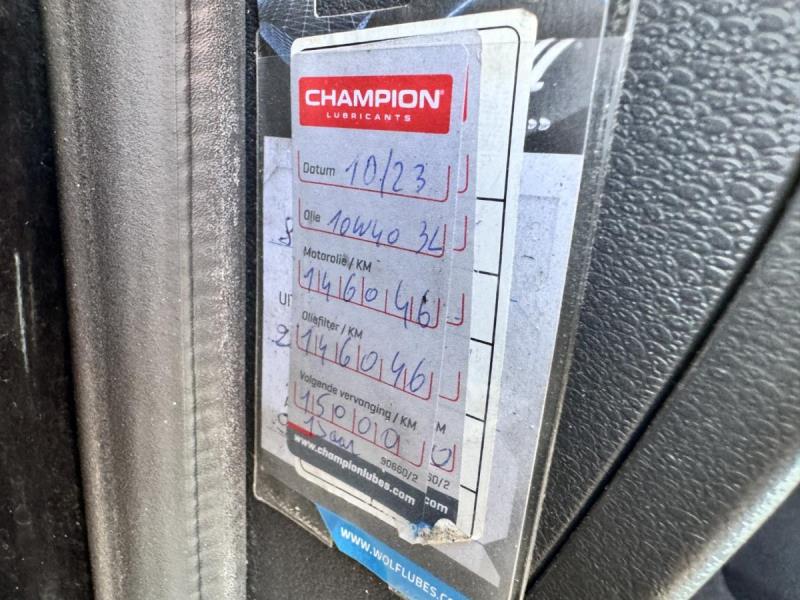 CHAMPION
LUBRICANTS
Datum 10/23
Olie 10W40 3L
Motorolie / KM
146046
Oliefilter / KM
146046
Volgende vervanging / KM M
15000 0
1 Jaar
90660/2 60/2
www.championlubes.com .com
WWW.WOLFLUBES.C